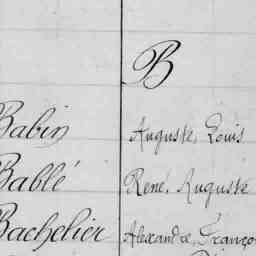 B
Babin Auguste, Louis
Bablé René, Auguste
Bachelier Alexandre, Franço